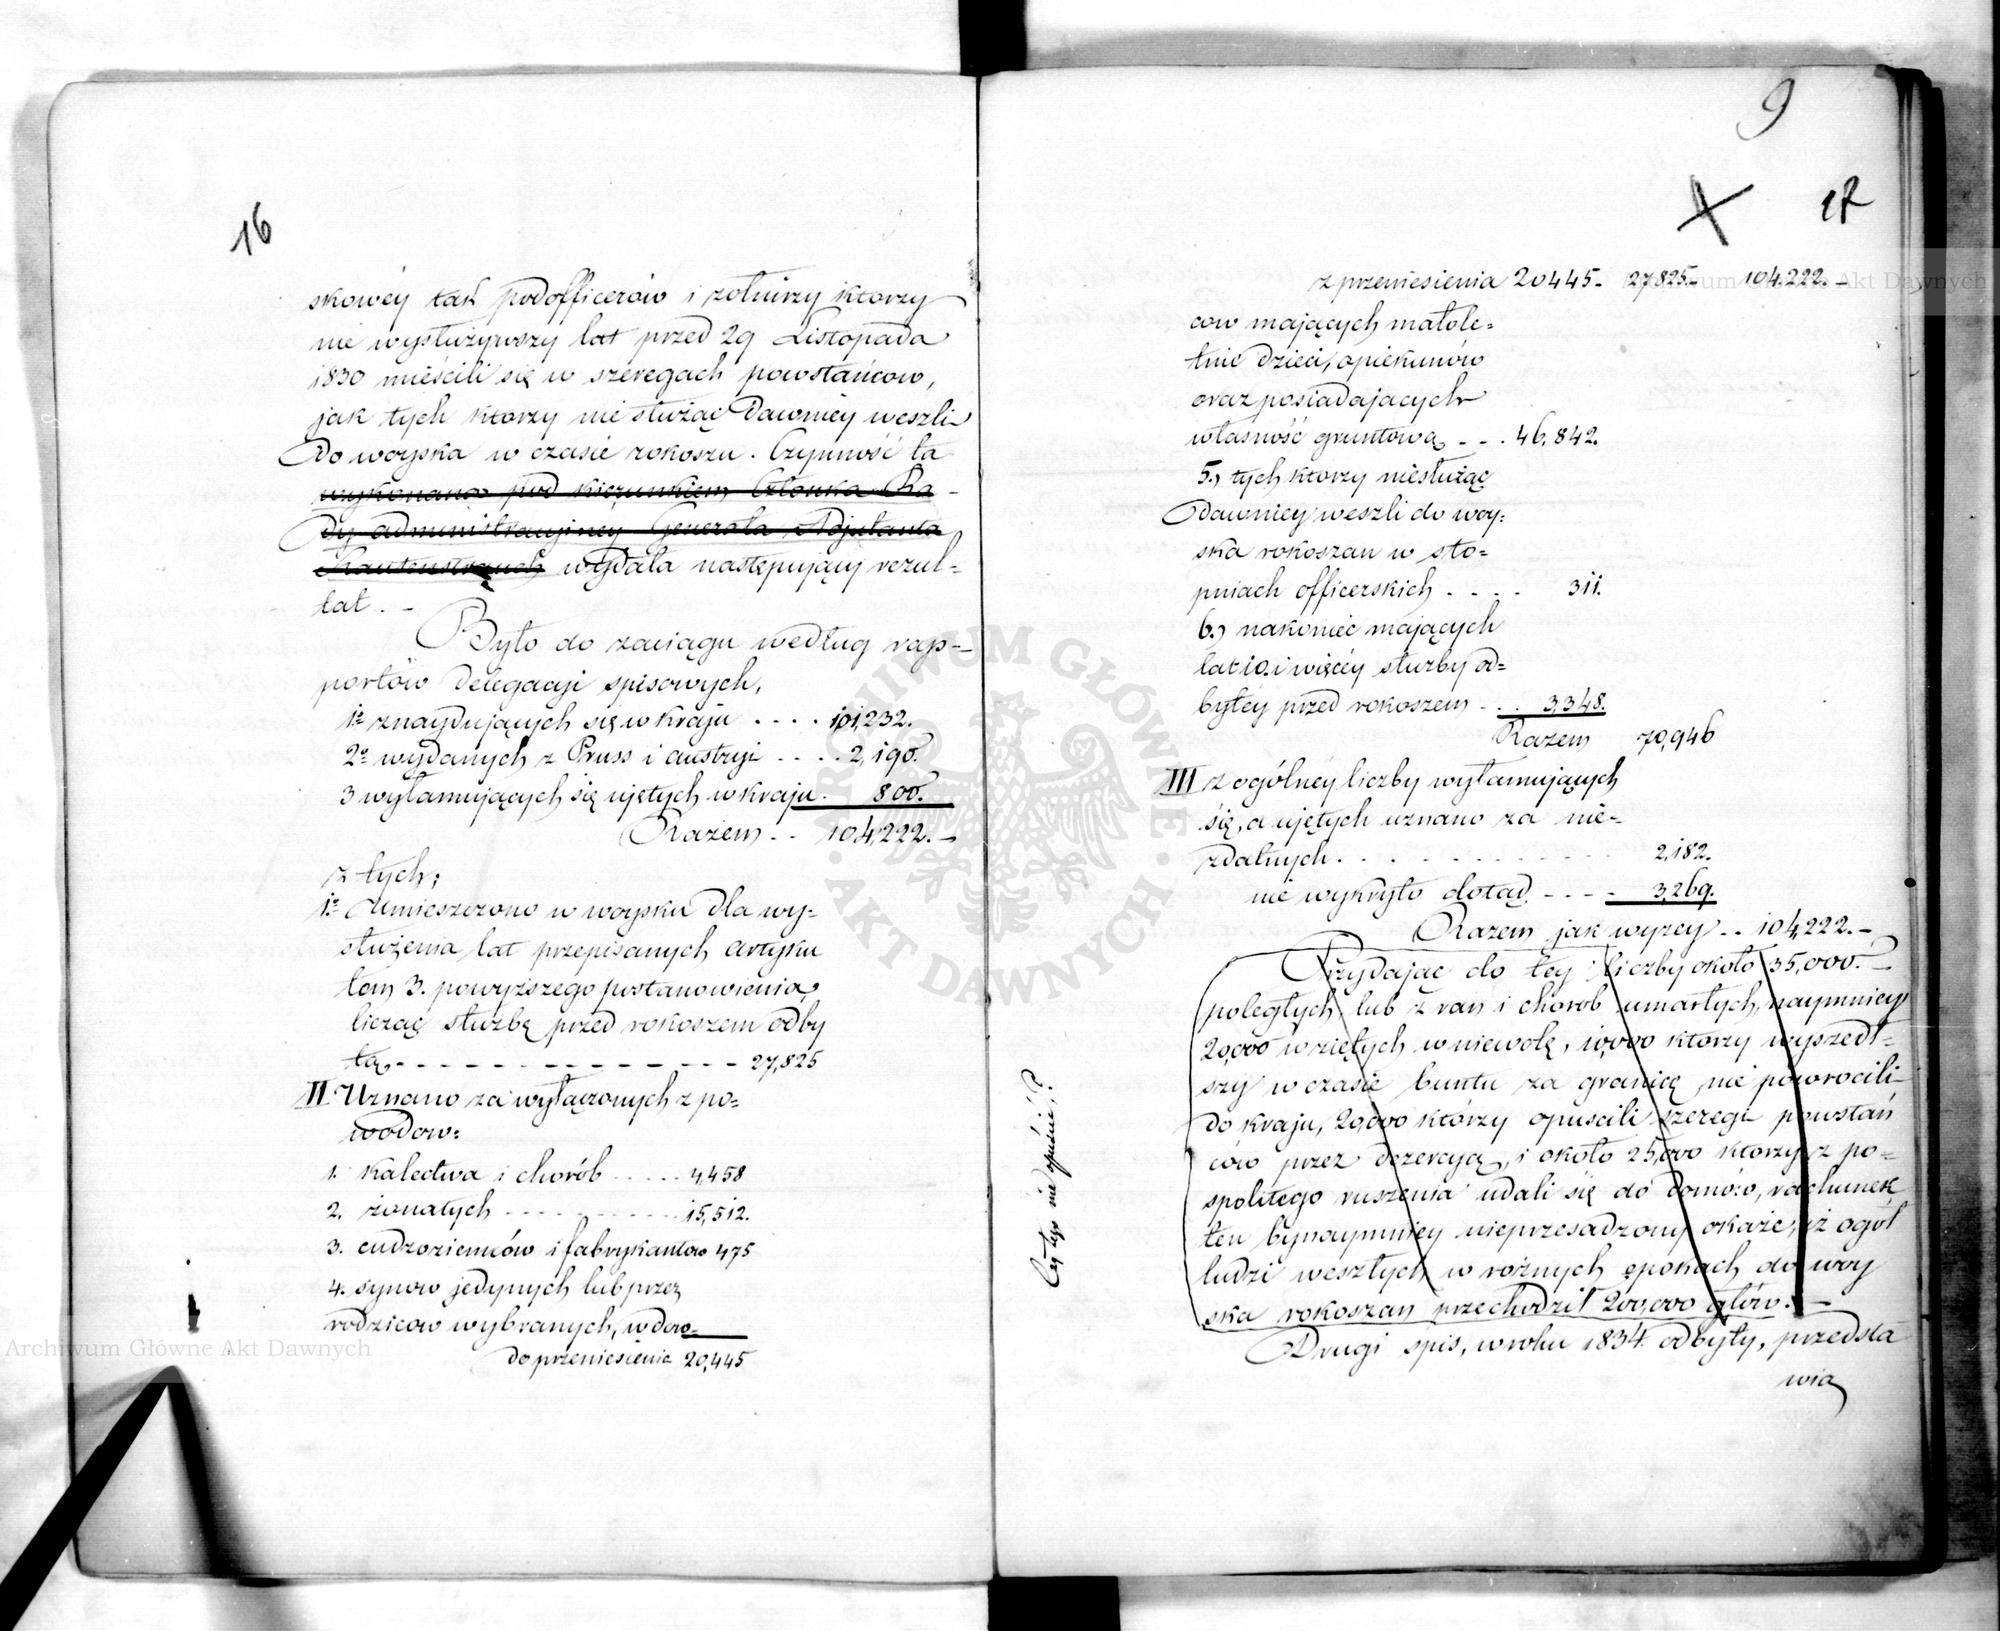 16
skowéy tak podofficerów i żołnirzy którzy
nie wysłużywszy lat przed 29 Listopada
1830 mieścili się w szeregach powstańcow,
jak tych ktorzy nie służąc dawniéy weszli
do woyska w czasie rokoszu. Czynność ta
wykonana pod kierunkiem Członka Ra-
dy administracyiney Generała Adjutanta
Rautenstrauch wydała następujący rezul-
tat. -
Było do zaciągu według rap-
portów delegacyi spisowych,
1º znaydujących się w kraju . . . . 101,232.
2º wydanych z Pruss i austryi . . . . 2,190.
3 wyłamujących się ujętych w kraju. 800.
Razem . . 104,222. -
z tych;
1º Umieszczono w woysku dla wy-
służenia lat przepisanych artyku
łem 3. powyższego postanowienia,
licząc służbę przed rokoszem odby
tą, - - - - - - - - - - - - - 27,825
II Uznano za wyłączonych z po-
wodow:
1. kalectwa i chorób . . . . . 4,458
2. żonatych - - - - - - - - - - - 15,512.
3. cudzoziemców i fabrykantow 475
4. synow jedynych lub przez
rodzicow wybranych, wdow-
do przeniesienia 20,445
9
17
z przeniesienia 20445. 27,825. 104,222. -
cow mających małole-
tnie dzieci, opiekunów
oraz posiadających
własność gruntową - - . 46,842.
5.) tych ktorzy niesłużąc
dawniey weszli do woy-
ska rokoszan w sto-
pniach officerskich . . . . 311.
6.) nakoniec mających
lat 10. i więcéy służby od-
bytéy przed rokoszem - . . 3,348.
Razem 70,946
III z ogólney liczby wyłamujących
się, a ujętych uznano za nie-
zdatnych . . . . . . . . . . . . 2,182.
nie wykryto dotąd - - - - 3,269.
Razem jak wyzey . . 104,222. -
Przydając do tey liczby około 35,000. -
poległych lub z ran i chorob umarłych, naymniey
20,000 wziętych w niewolę, 10,000 ktorzy wyszedł-
szy w czasie buntu za granicę nie powrocili
do kraju, 20,000 którzy opuscili szeregi powstań
ców przez dezercyą, i około 25,000 ktorzy z po-
spolitego ruszenia udali się do domów, rachunek
ten bynaymniey nieprzesadzony okaże, iż ogół
ludzi weszłych w rożnych epokach do woy
ska rokoszan przechodził 200,000 głów. -
Drugi spis, w roku 1834 odbyty, przedsta
wia
Czy tego nie opuścić?
Archiwum Główne Akt Dawnych
Archiwum Główne Akt Dawnych
ARCHIWUM GŁÓWNE · AKT DAWNYCH ·